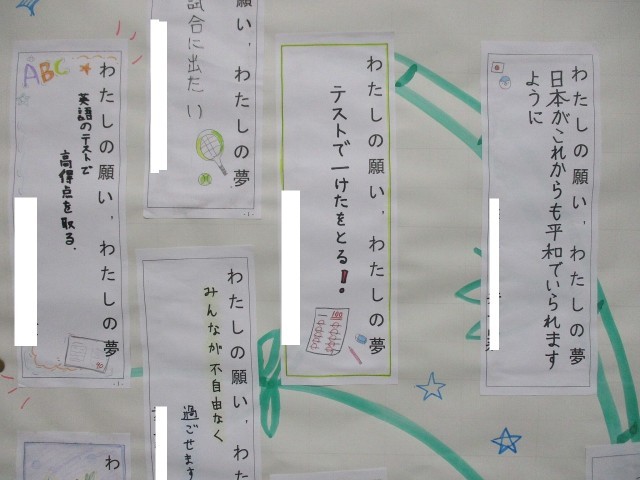 わたしの願い、わたしの夢
日本がこれからも平和でいられます
ように
わたしの願い、わたしの夢
テストで一けたをとる!。
100
願い、わたしの夢
試合に出たい
わたしの願い、わた
みんなが不自由なく
過ごせます
わたしの願い、わたしの夢
英語のテストで
高得点を取る.
ABC
わ